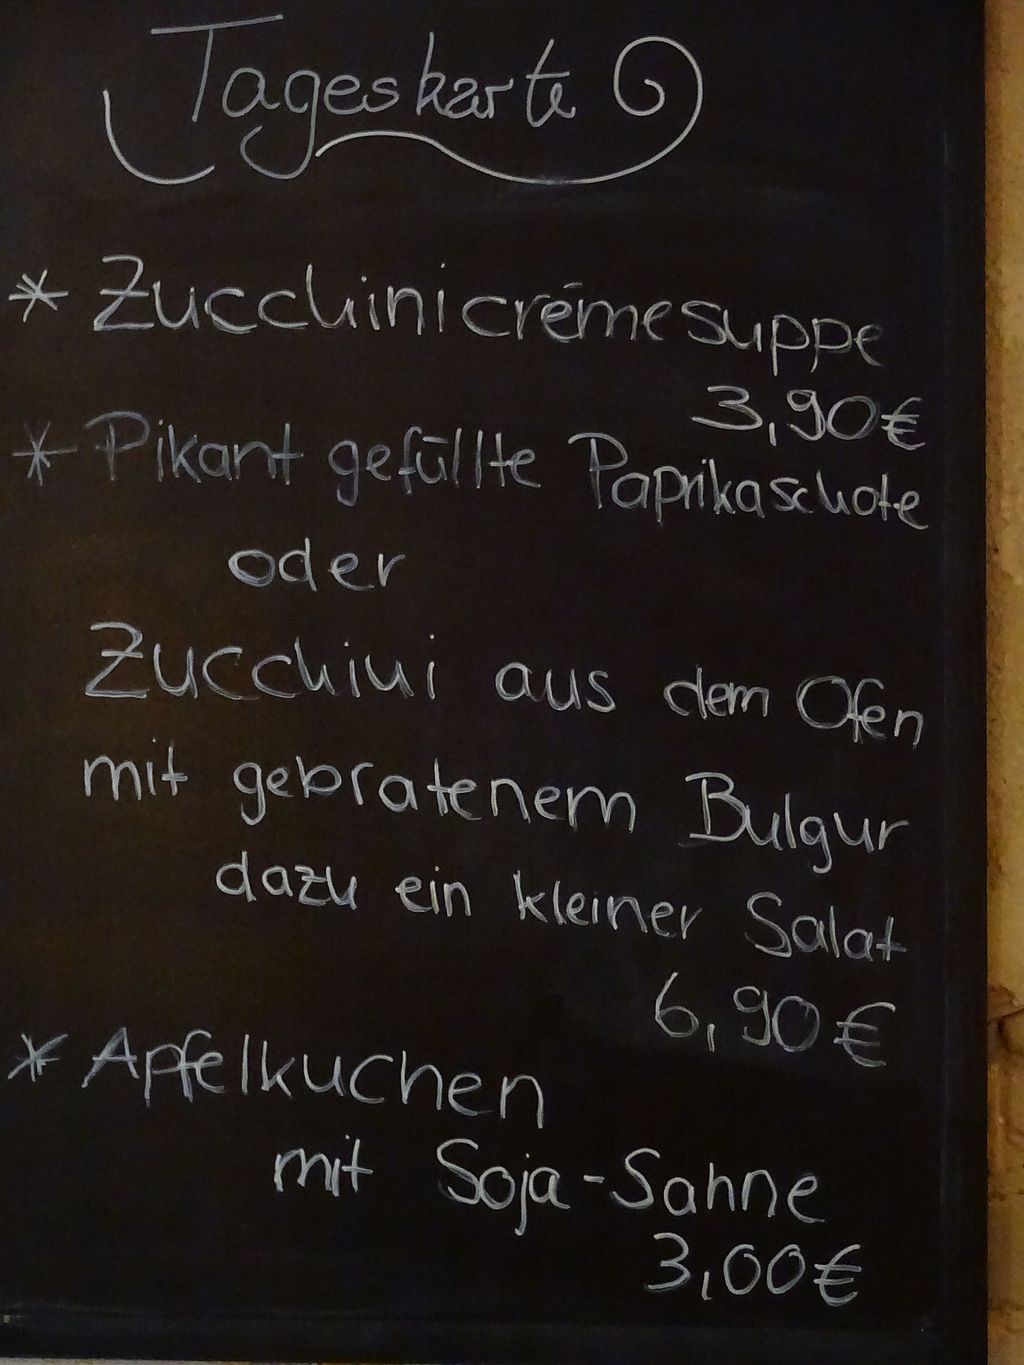 Tageskarte
* Zucchinicrémesuppe
3,90€
* Pikant gefüllte Paprikaschote
oder
Zucchini aus dem Ofen
mit gebratenem Bulgur
dazu ein kleiner Salat
6,90€
* Apfelkuchen
mit Soja-Sahne
3,00€